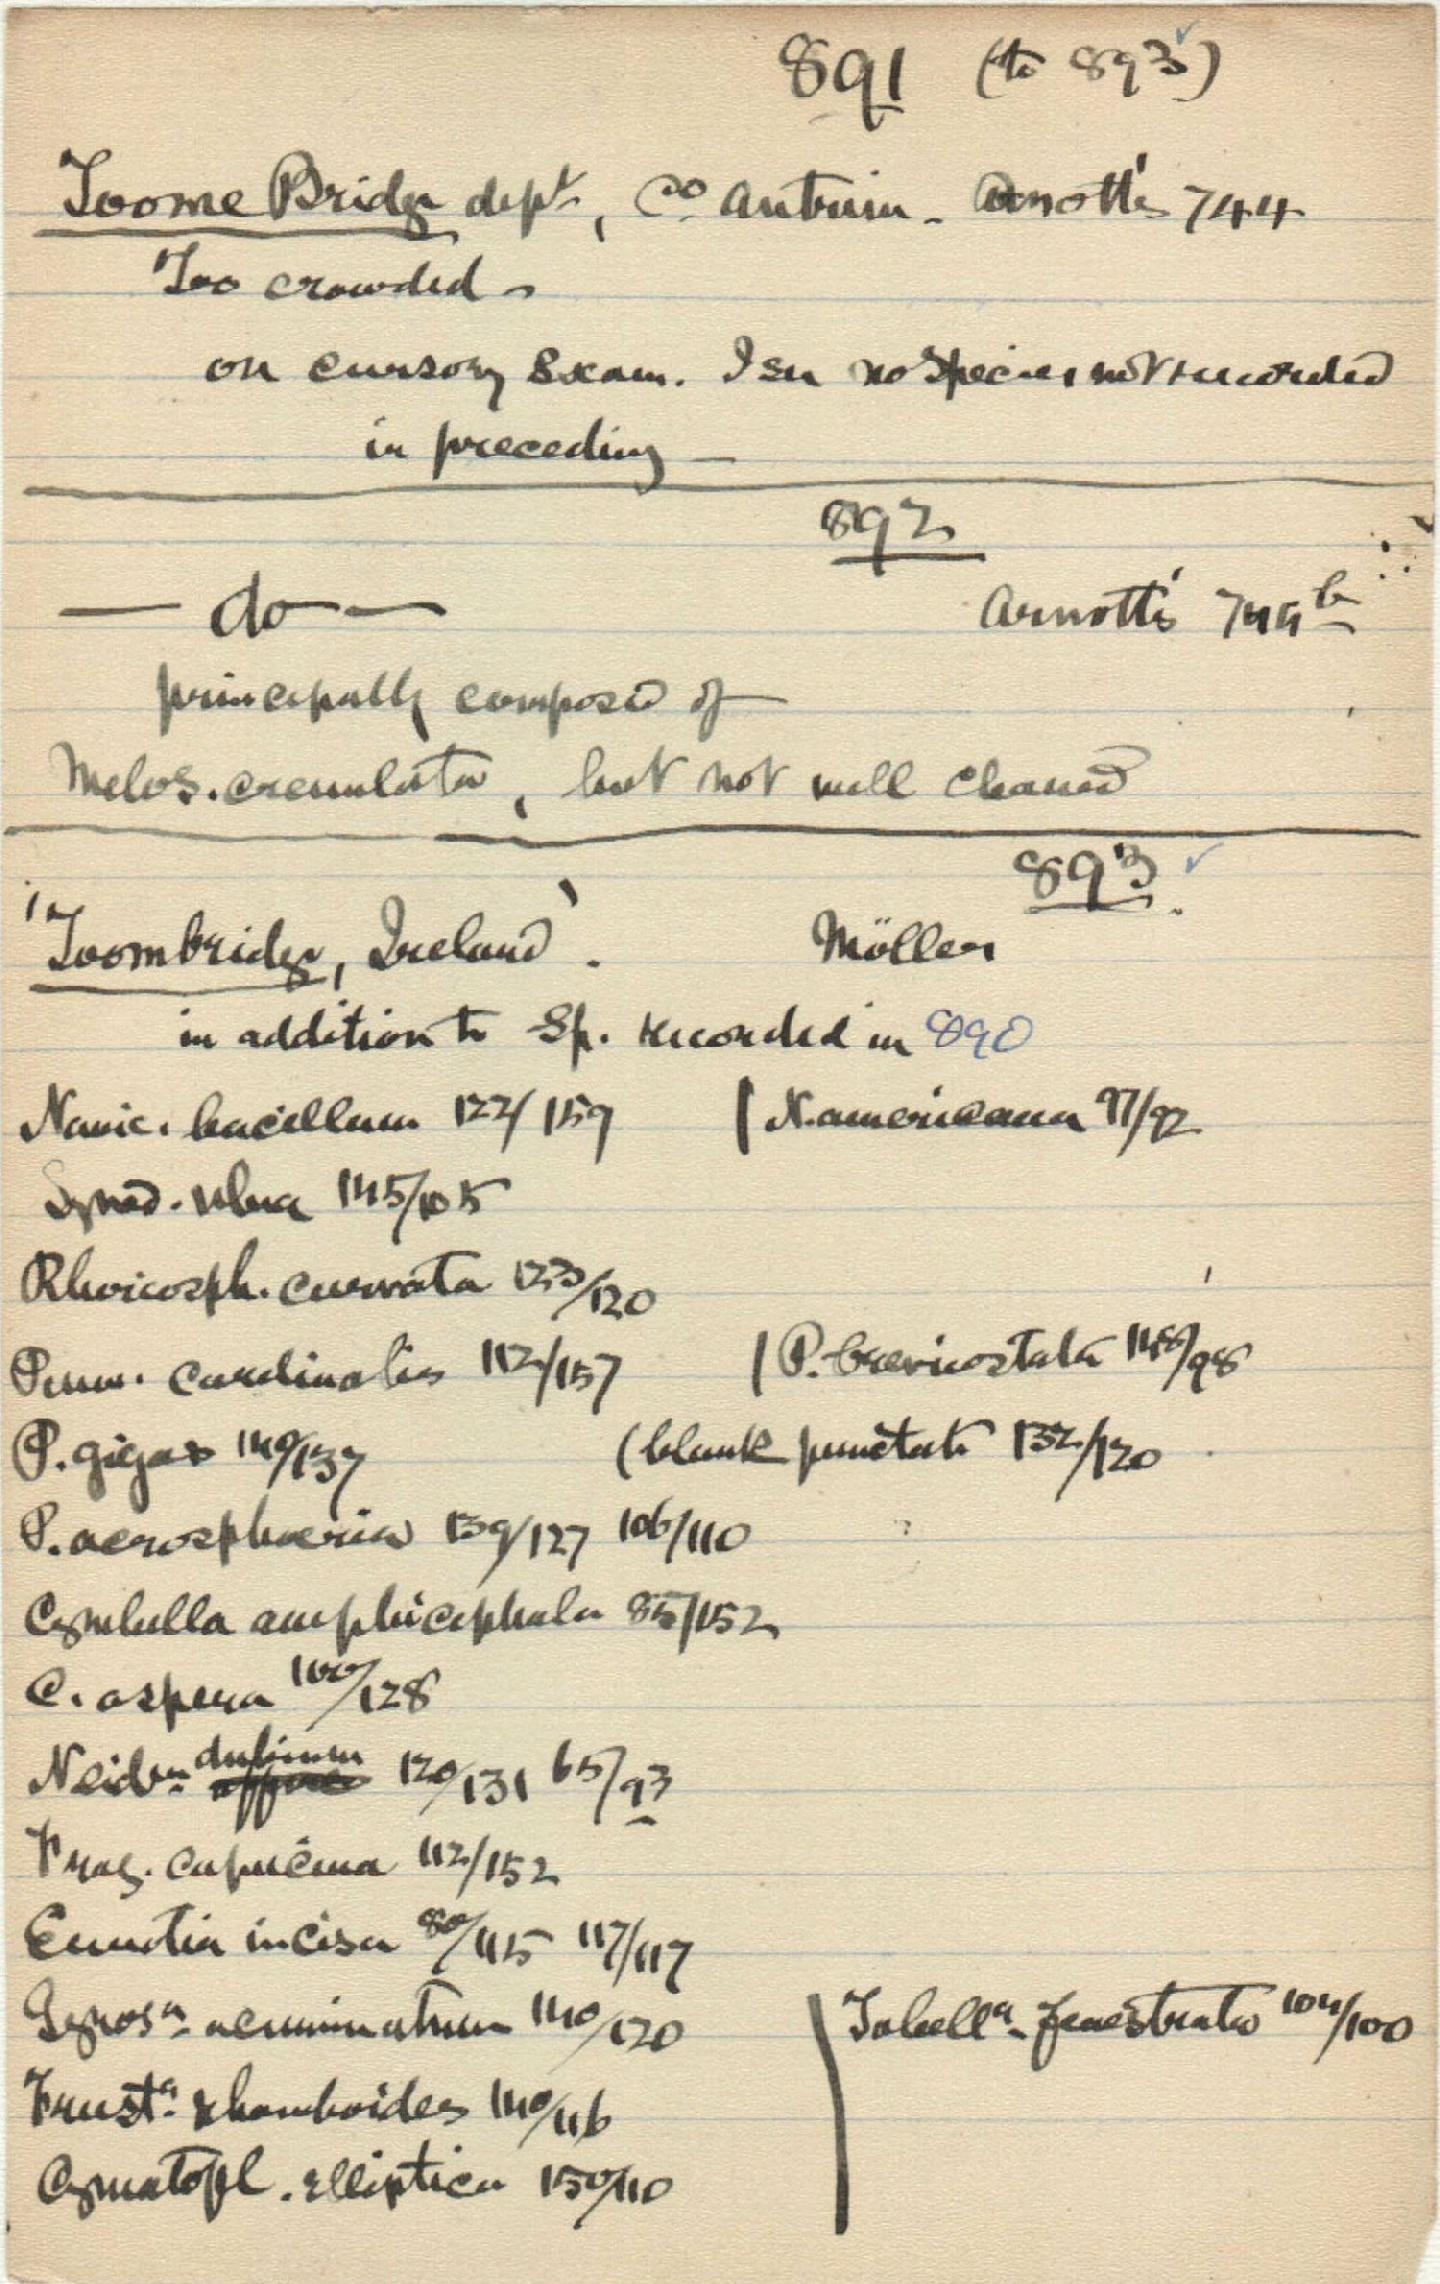 891 (to 893)
Toome Bridge dept, Co Antrim - Arnott's 744
Too crowded -
on cursory Exam. I see no species not recorded
in preceding -
892
— do — Arnott's 744b
principally composed of
Melos. crenulata, but not well cleaned
893
'Toombridge, Ireland'. Möller
in addition to Sp. recorded in 890
Navic. bacillum 122/159 | N. americana 97/92
Syned. ulna 145/105
Rhoicosph. curvata 123/120
Pinn. cardinalis 112/157 | P. brevicostata 148/98
P. gigas 140/137 (blank punctate 132/120
P. acrosphaeria 139/127 106/110
Cymbella amphicephala 85/152
C. aspera 100/128
Neidm dubium 120/131 65/93
Frag. capucina 112/152
Eunotia incisa 80/115 117/117
Gyrosa acuminatum 140/120 | Tabella. fenestrata 104/100
Frusta. rhomboides 140/116
Cymatopl. elliptica 150/110